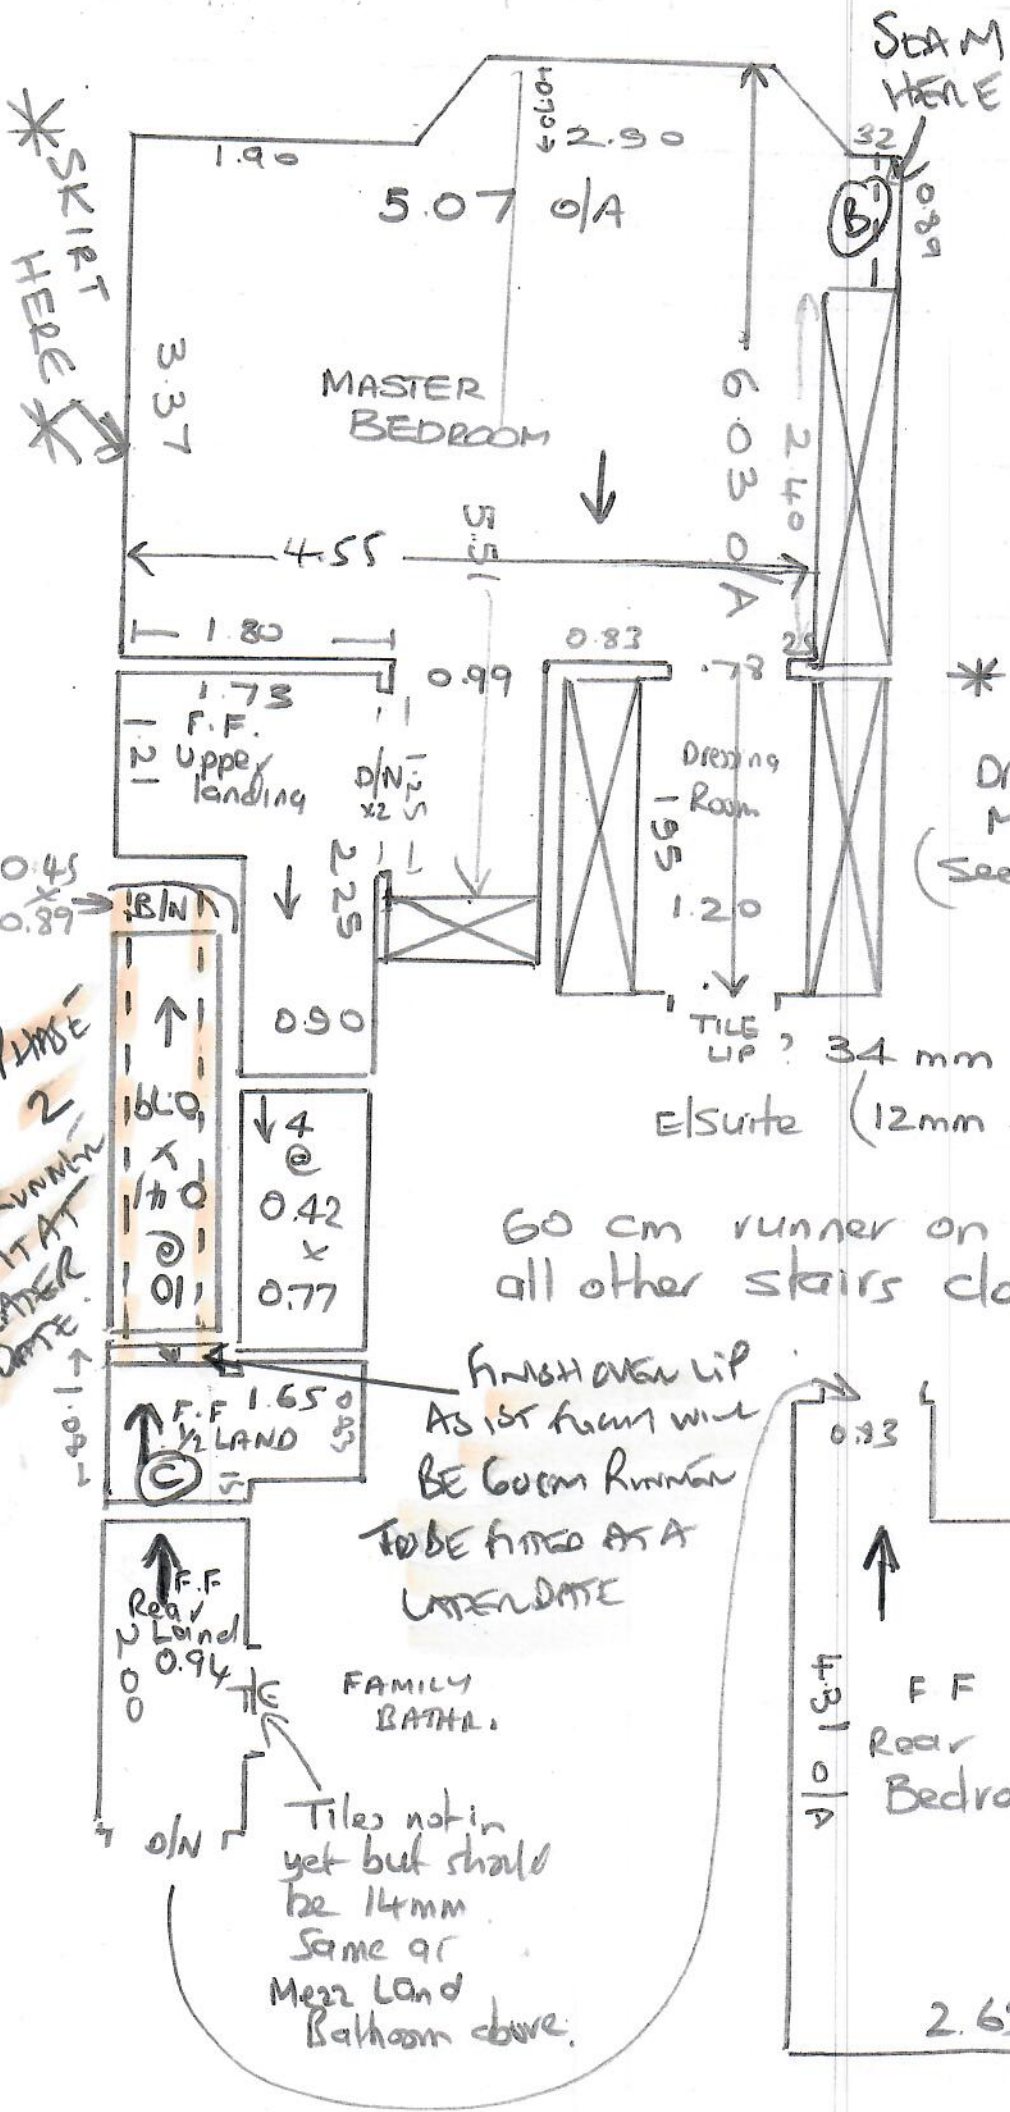 SEAM
HERE
* SKIRT
HERE *
1.90
0.70
2.90
32
5.07 O/A
B
0.89
3.37
MASTER
BEDROOM
6.03 O/A
2.40
4.55
5.51
1.80
0.99
0.83
.78
25
*
1.73
F.F.
Upper
landing
1.21
D/N
x2
1.25
Dressing
Room
1.95
1.20
(See
0.45
x
0.89
B/N
2.25
0.90
TILE
LIP ?
34 mm
E/Suite
(12mm
PHASE
2
RUNNER
AT
LATER
DATE
10
@
0.41
x
0.79
4
@
0.42
x
0.77
60 cm runner on
all other stairs
FINISH OVER LIP
AS 1ST FLIGHT WILL
BE 60CM RUNNER
TO BE FITTED AT A
LATER DATE
1.08
F.F
1/2 LAND
1.65
0.83
C
0.83
F.F
Rear
Land
0.94
2.00
T/E
D/N
FAMILY
BATHR.
Tiles not in
yet but should
be 14mm
Same as
Mezz Land
Bathroom above.
4.31 O/A
F F
Rear